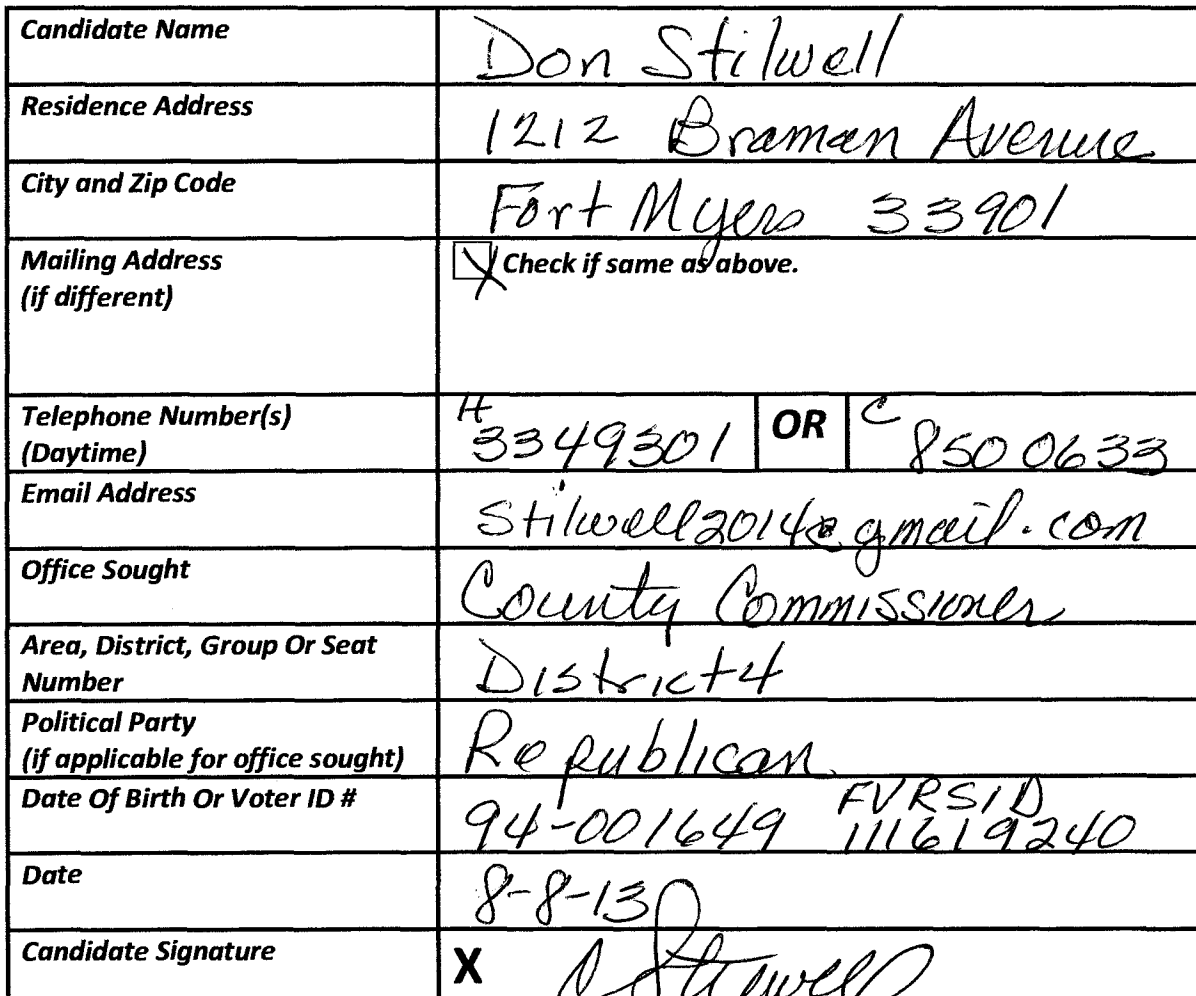 Candidate Name Don Stilwell
Residence Address 1212 Braman Avenue
City and Zip Code Fort Myers 33901
Mailing Address
(if different)
X Check if same as above.
Telephone Number(s)
(Daytime)
H 3349301 OR C 850 0633
Email Address Stilwell2014@gmail.com
Office Sought County Commissioner
Area, District, Group Or Seat
Number
District 4
Political Party
(if applicable for office sought)
Republican
Date Of Birth Or Voter ID # 94-001649 FVRSID
111619240
Date 8-8-13
Candidate Signature X D Stilwell